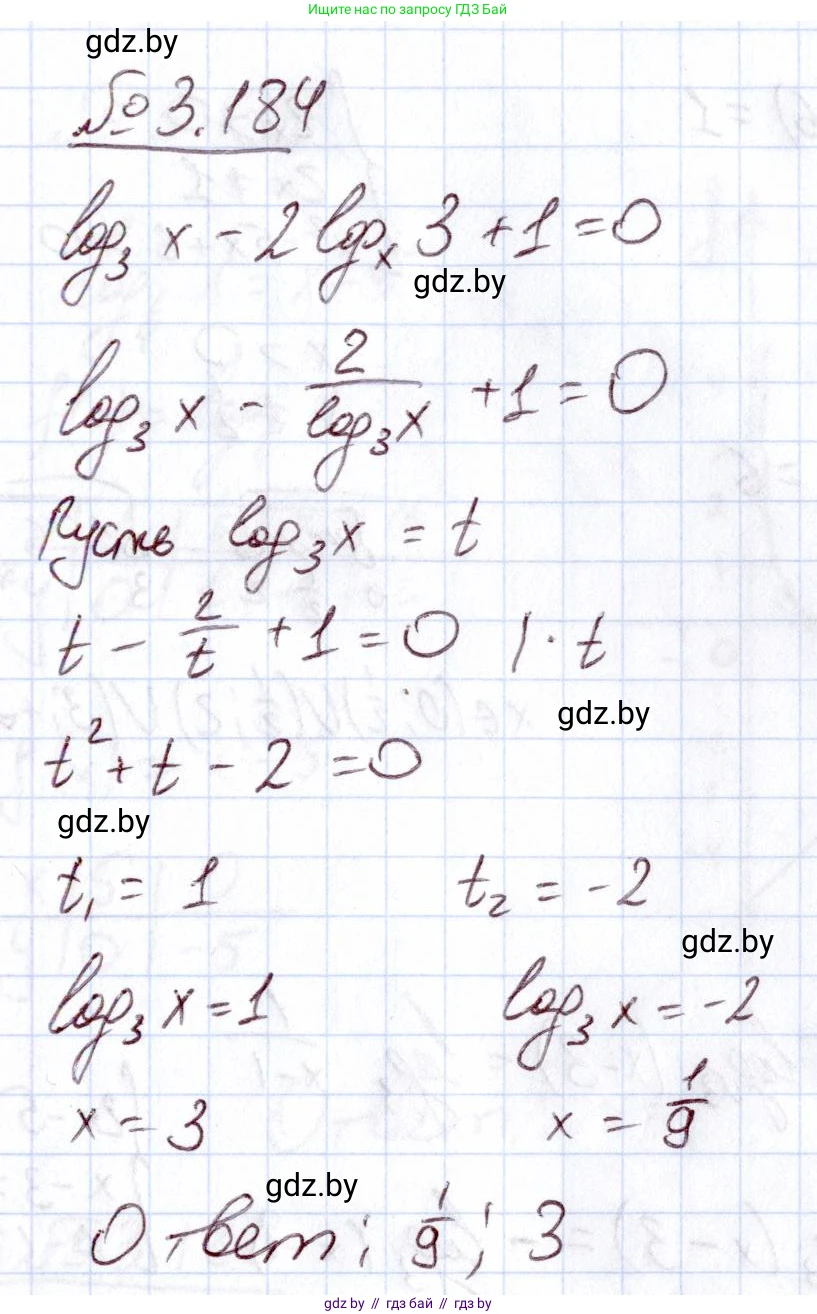 Ищите нас по запросу ГДЗ Бай
gdz.by
№ 3.184
log₃ x - 2 logₓ 3 + 1 = 0
gdz.by
log₃ x - 2/log₃x + 1 = 0
Пусть log₃ x = t
t - 2/t + 1 = 0 | · t
gdz.by
t² + t - 2 = 0
gdz.by
t₁ = 1 t₂ = -2
gdz.by
log₃ x = 1 log₃ x = -2
x = 3 x = 1/9
gdz.by
Ответ: 1/9; 3
gdz.by // гдз бай // gdz.by